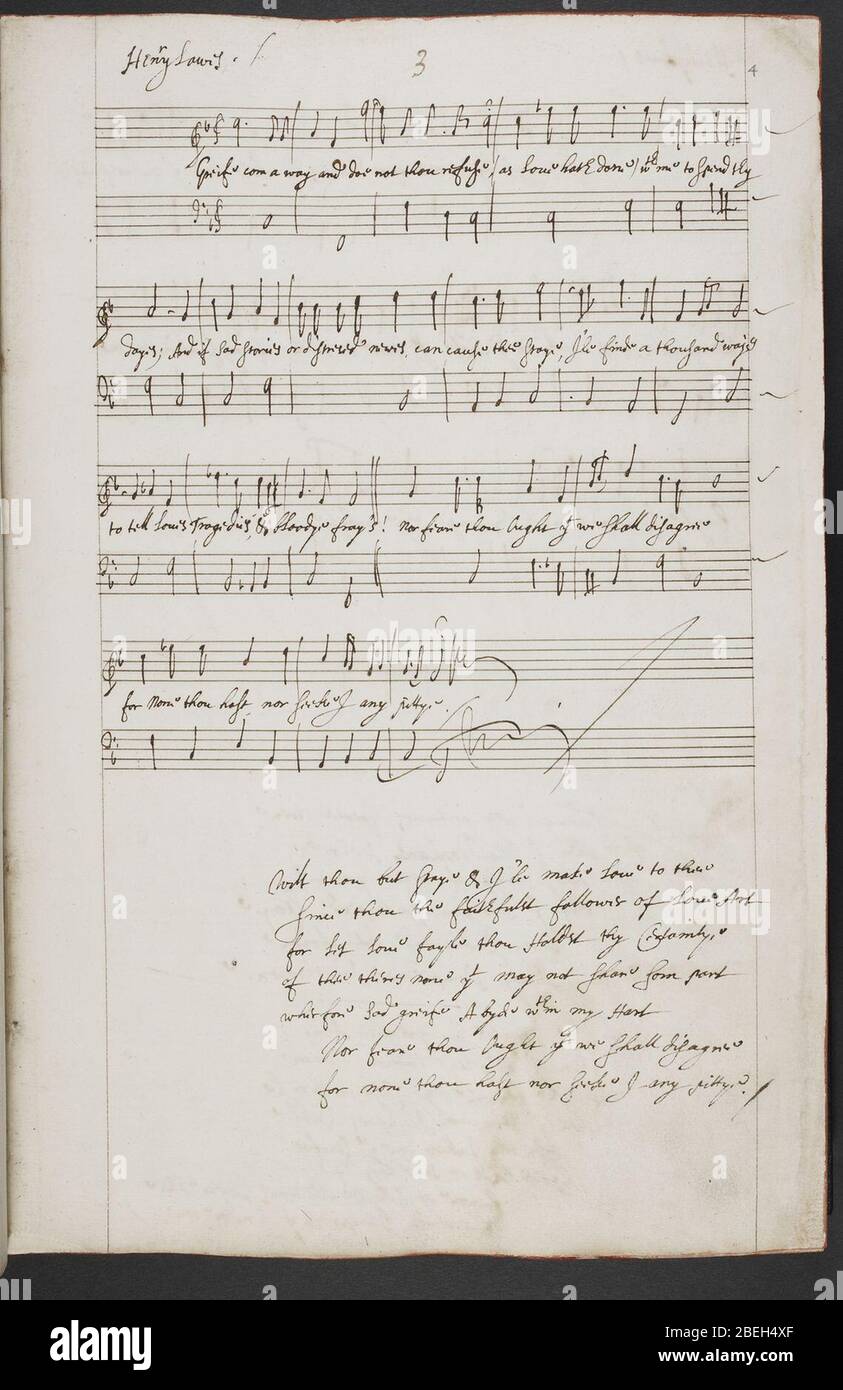 Henry Lawes .
3
4
Greife com a way and doe not thou refuse / as Loue hath done / wth me to spend thy
dayes; And if sad stories or distresed newes, can cause thee staye, I'le finde a thousand ways
to tell Loues Tragedies, & bloodye fray's! Nor feare thou Ought yt we shall disagree
for None thou hast, nor seeke I any pittye .
Wilt thou but staye & I'le make loue to thee
since thou the faithfulst follower of Loues Art
for let loue fayle thou Holdst thy Certaintye
of thee theres none yt may not share som part
wherfore sad greife Abyde wthin my Hart
Nor feare thou Ought yt we shall disagree
for none thou hast nor seeke I any pittye.
alamy
Image ID: 2BEH4XF
www.alamy.com